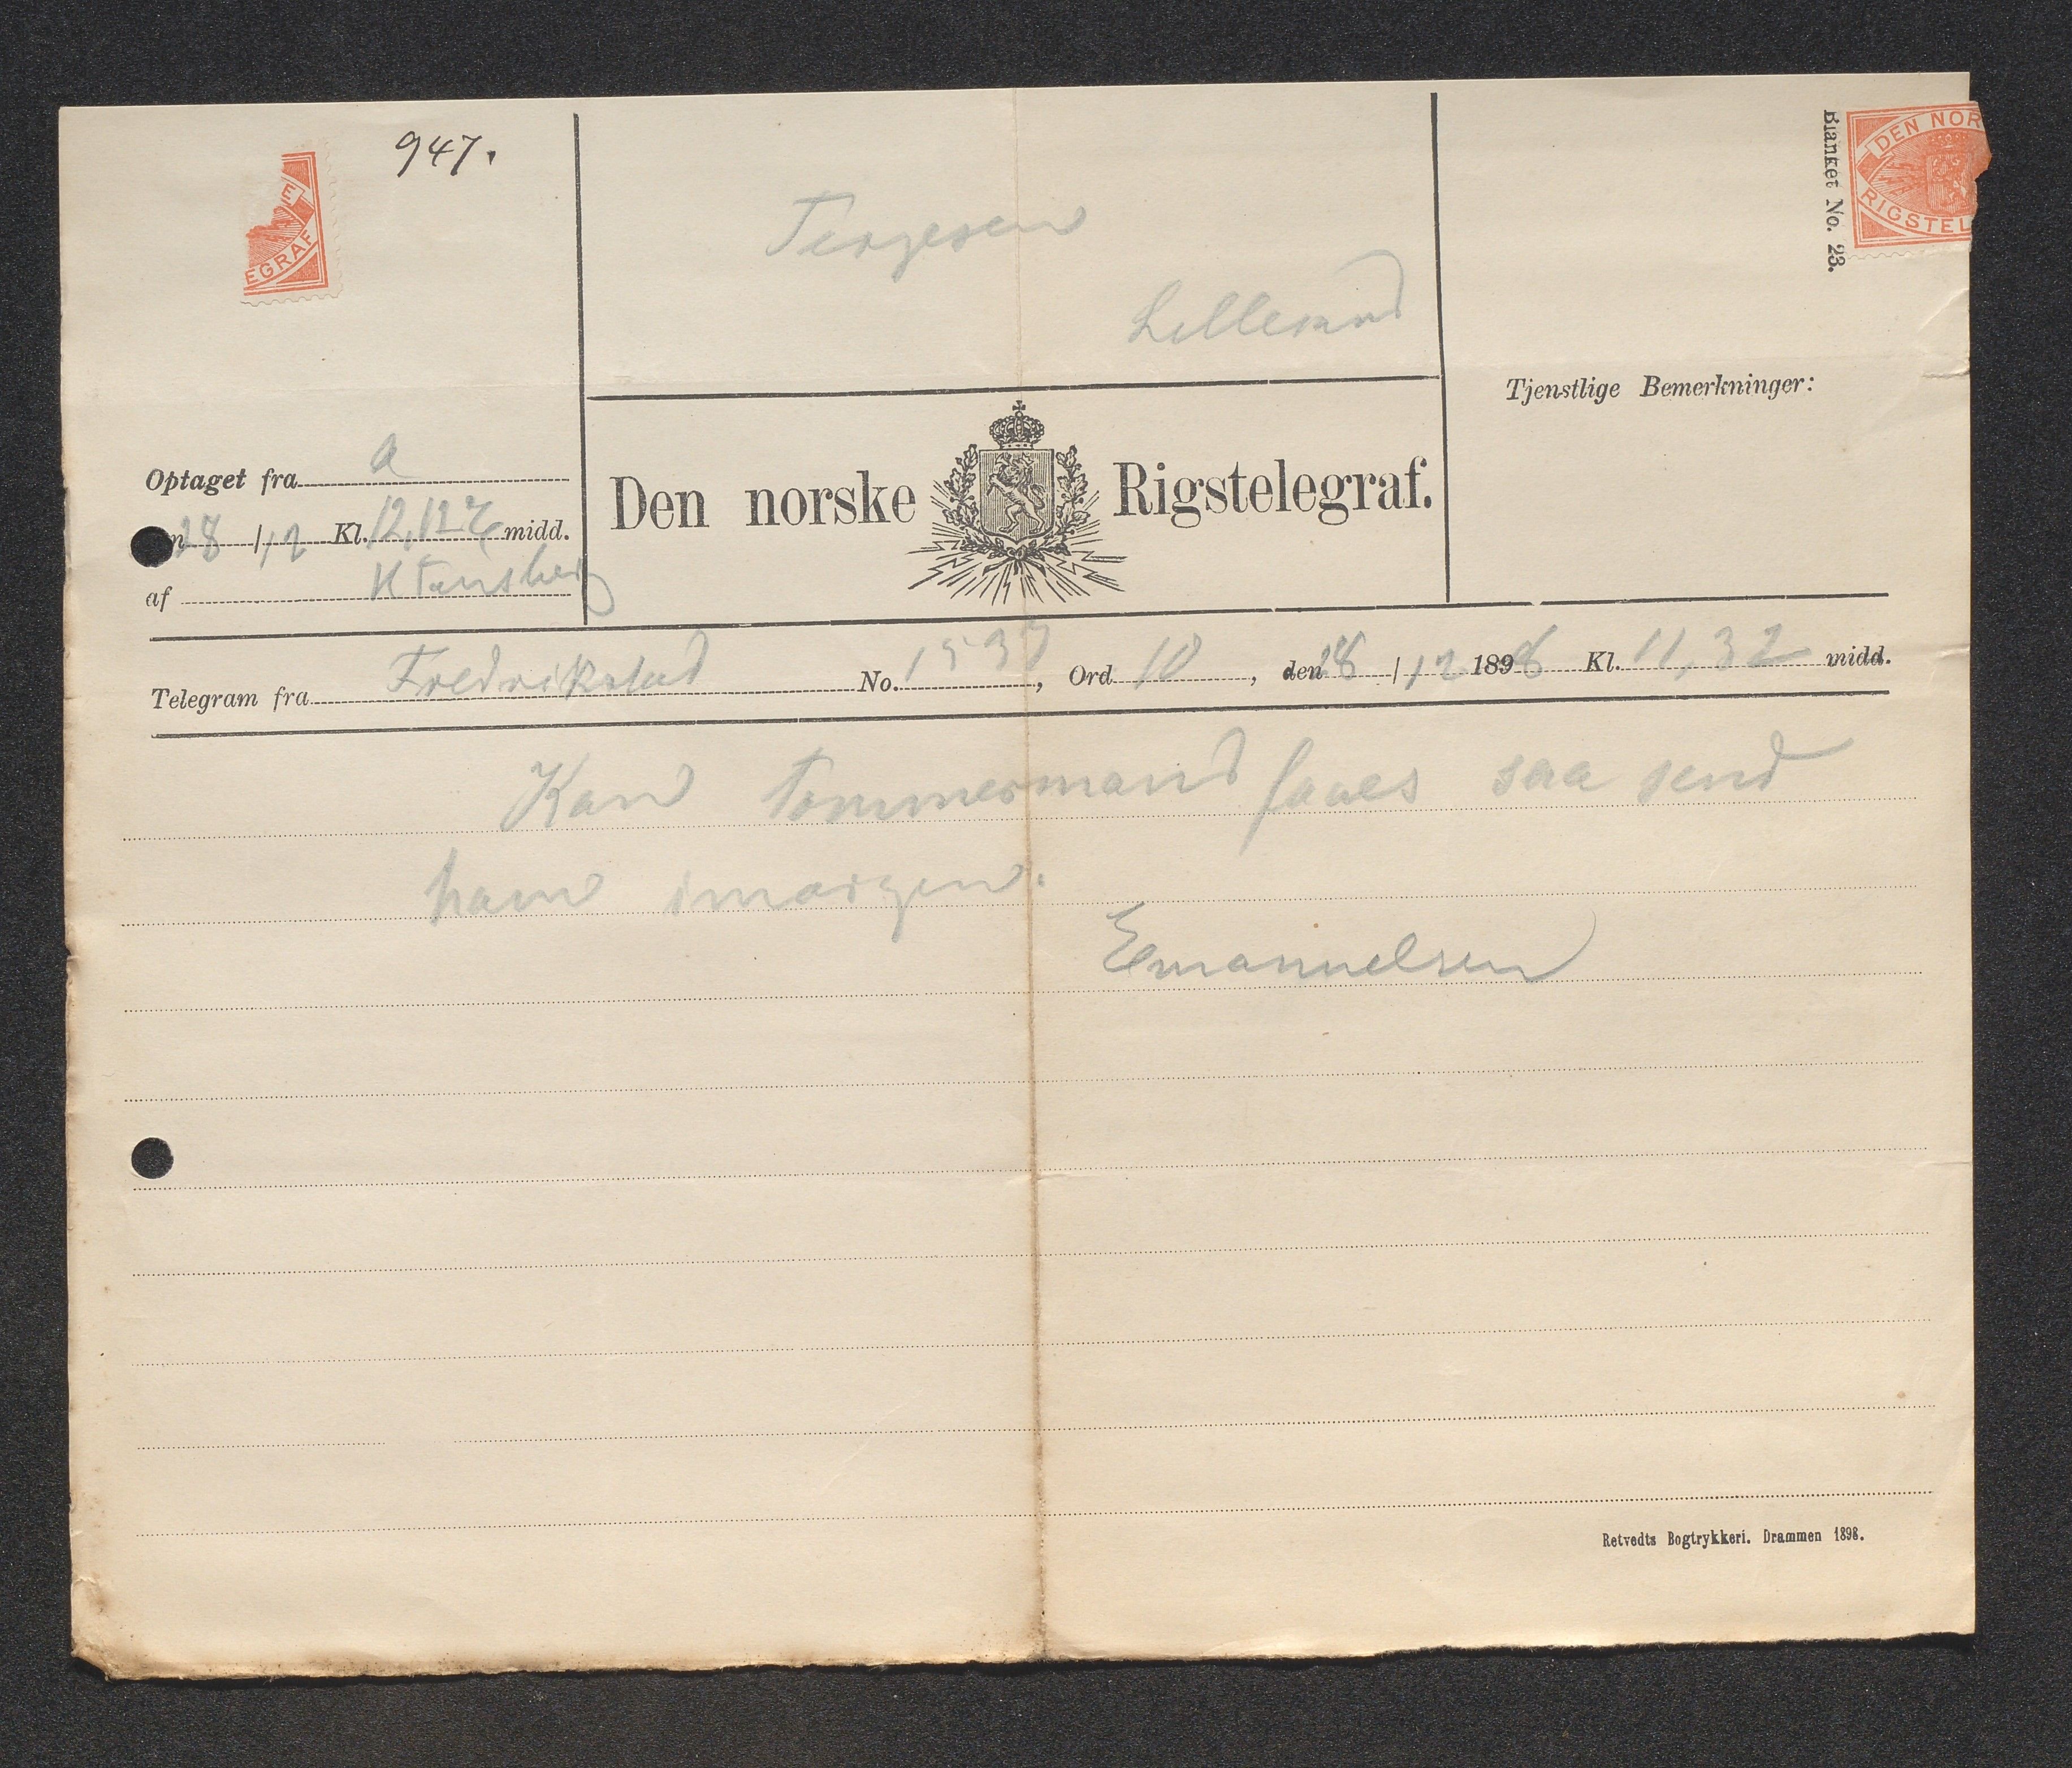 947.
DEN NOR
RIGSTEL
E
EGRAF
Blanket No. 23.
Tergesen
Lillesand
Tjenstlige Bemerkninger:
Optaget fra a
28/12 Kl. 12,12 midd.
af H Tønsberg
Den norske Rigstelegraf.
Telegram fra Fredrikstad No. 1537, Ord 10, den 28/12 1898 Kl. 11,32 midd.
Kan Tømmermand faaes saa send
ham imorgen.
Emanuelsen
Retvedts Bogtrykkeri. Drammen 1898.